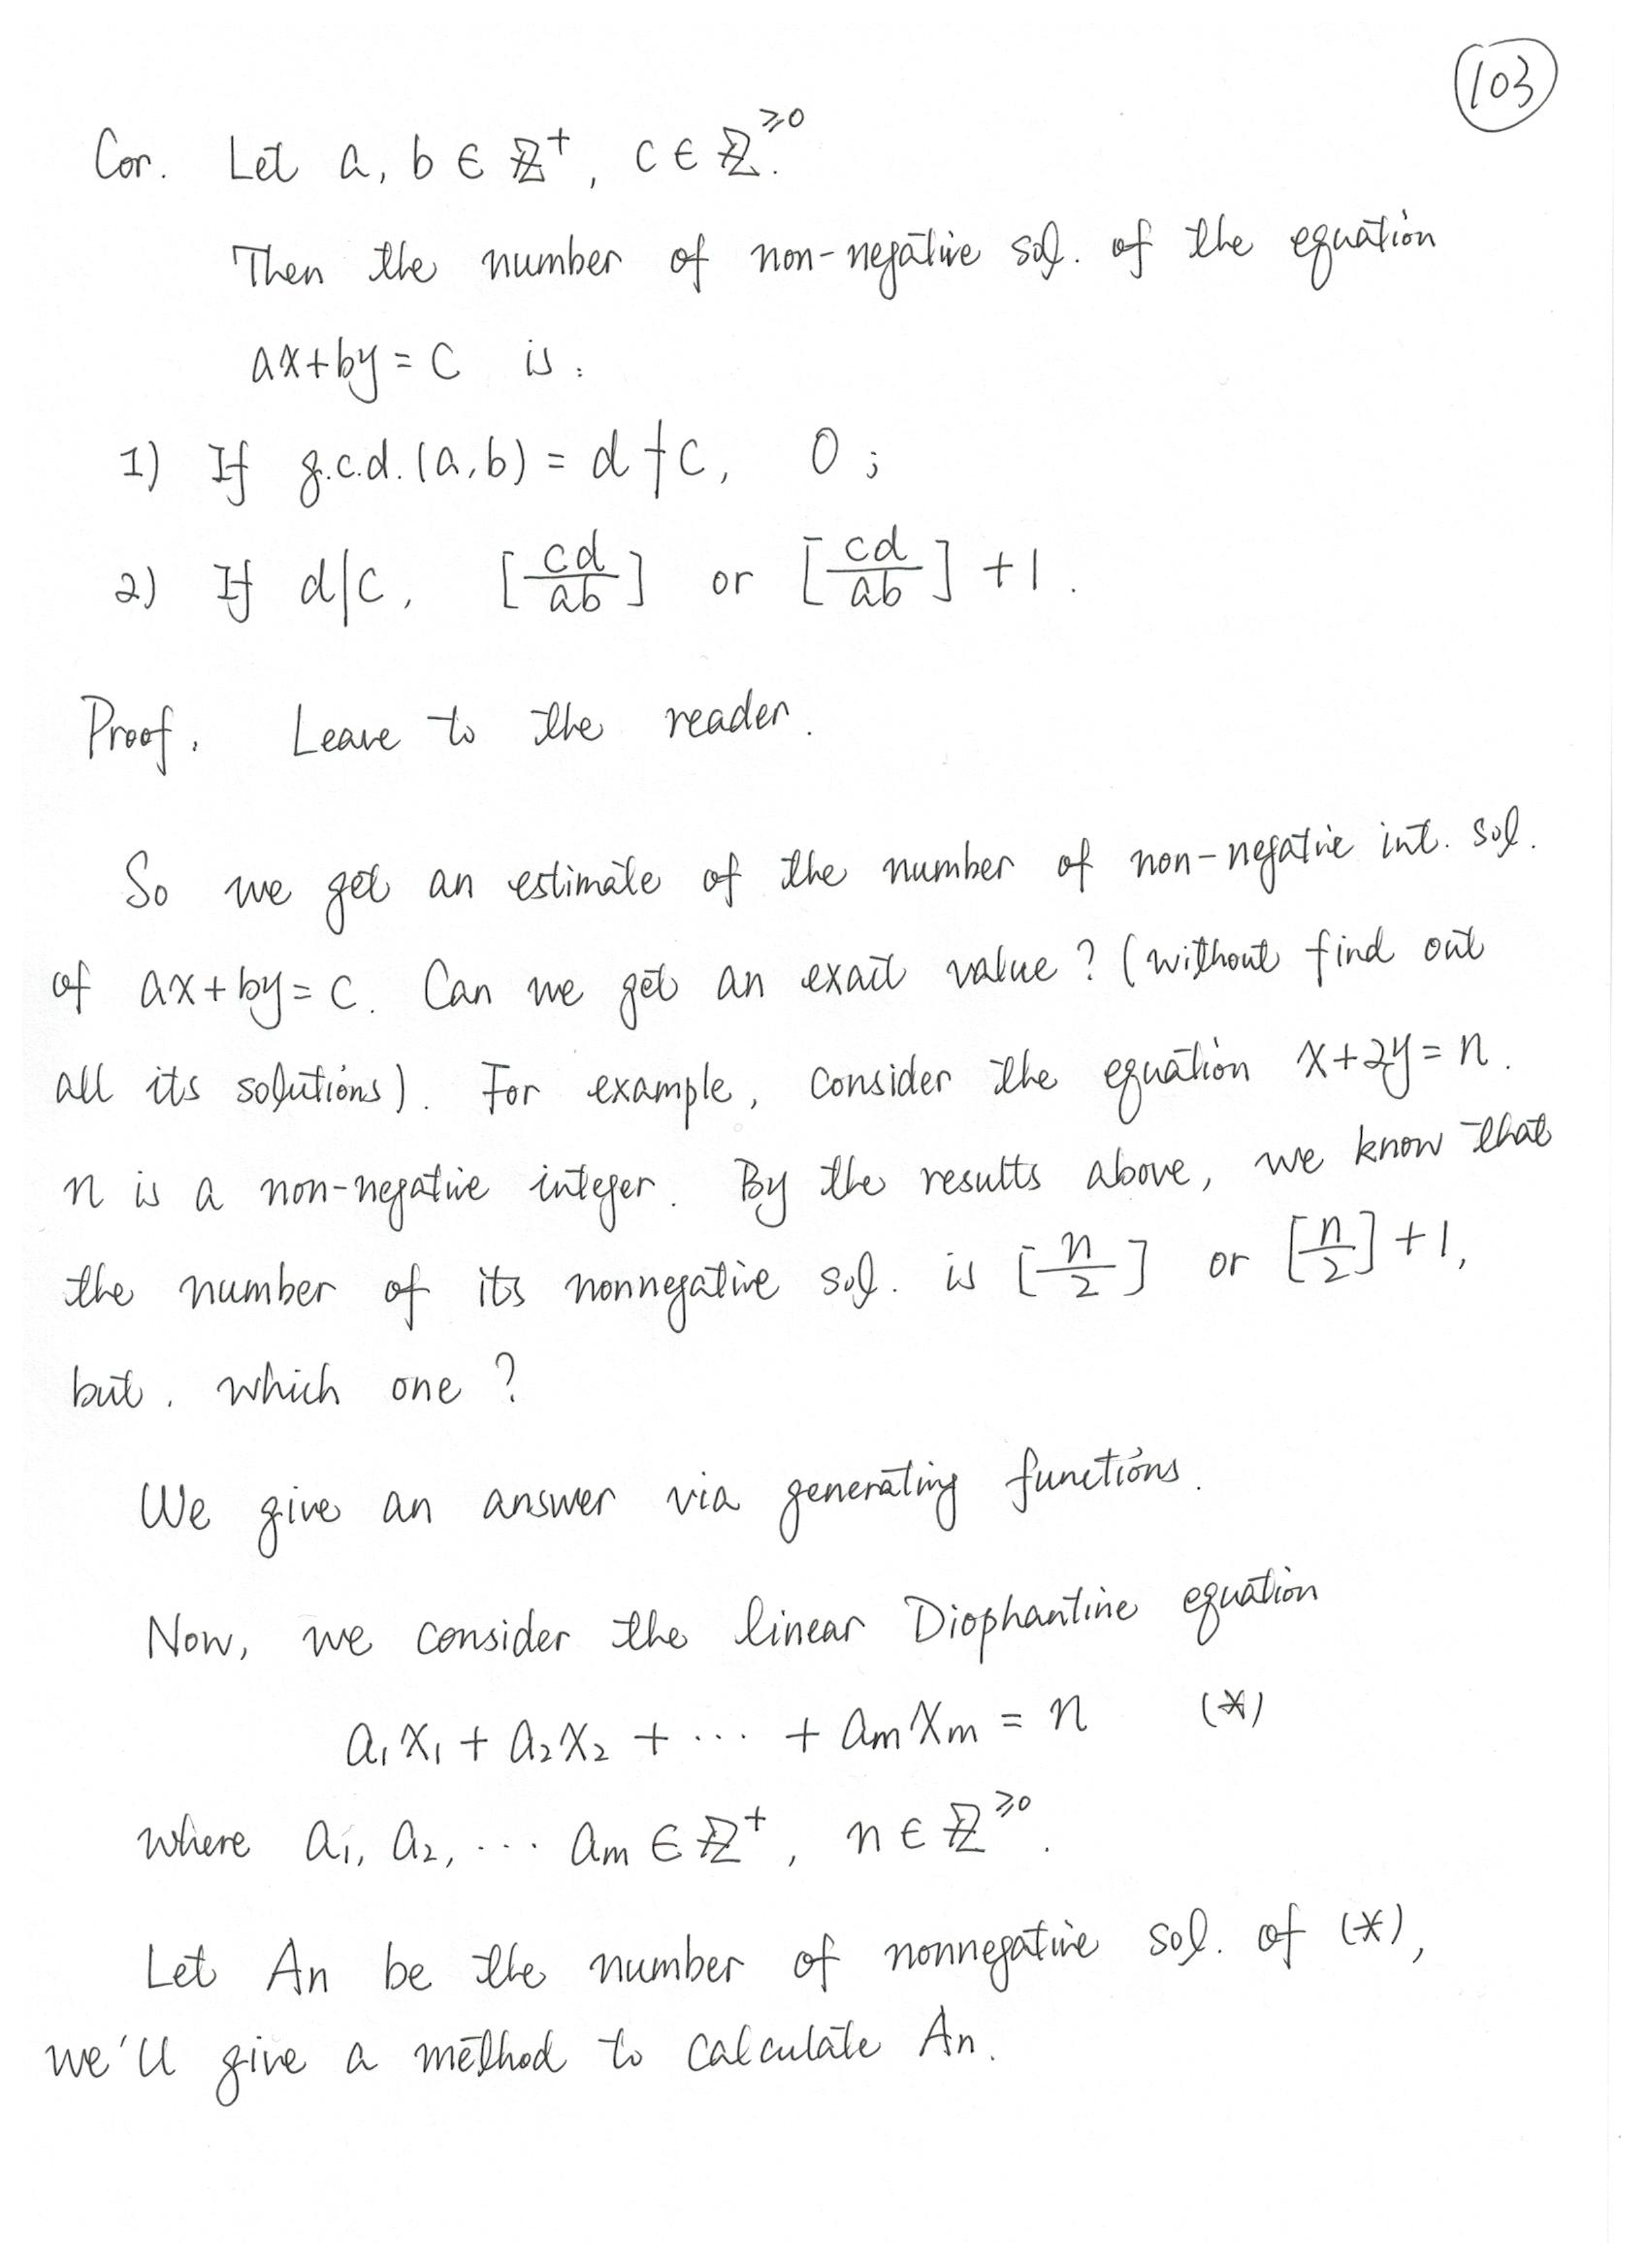 103
Cor. Let a, b ∈ ℤ⁺, c ∈ ℤ^{≥0}.
Then the number of non-negative sol. of the equation
ax+by=c is:
1) If g.c.d.(a,b) = d ∤ c, 0;
2) If d|c, [cd/ab] or [cd/ab]+1.
Proof. Leave to the reader.
So we get an estimate of the number of non-negative int. sol.
of ax+by=c. Can we get an exact value? (without find out
all its solutions). For example, consider the equation x+2y=n.
n is a non-negative integer. By the results above, we know that
the number of its nonnegative sol. is [n/2] or [n/2]+1,
but, which one?
We give an answer via generating functions.
Now, we consider the linear Diophantine equation
a₁x₁ + a₂x₂ + ⋯ + aₘxₘ = n (*)
where a₁, a₂, ⋯ aₘ ∈ ℤ⁺, n ∈ ℤ^{≥0}.
Let An be the number of nonnegative sol. of (*),
we'll give a method to calculate An.